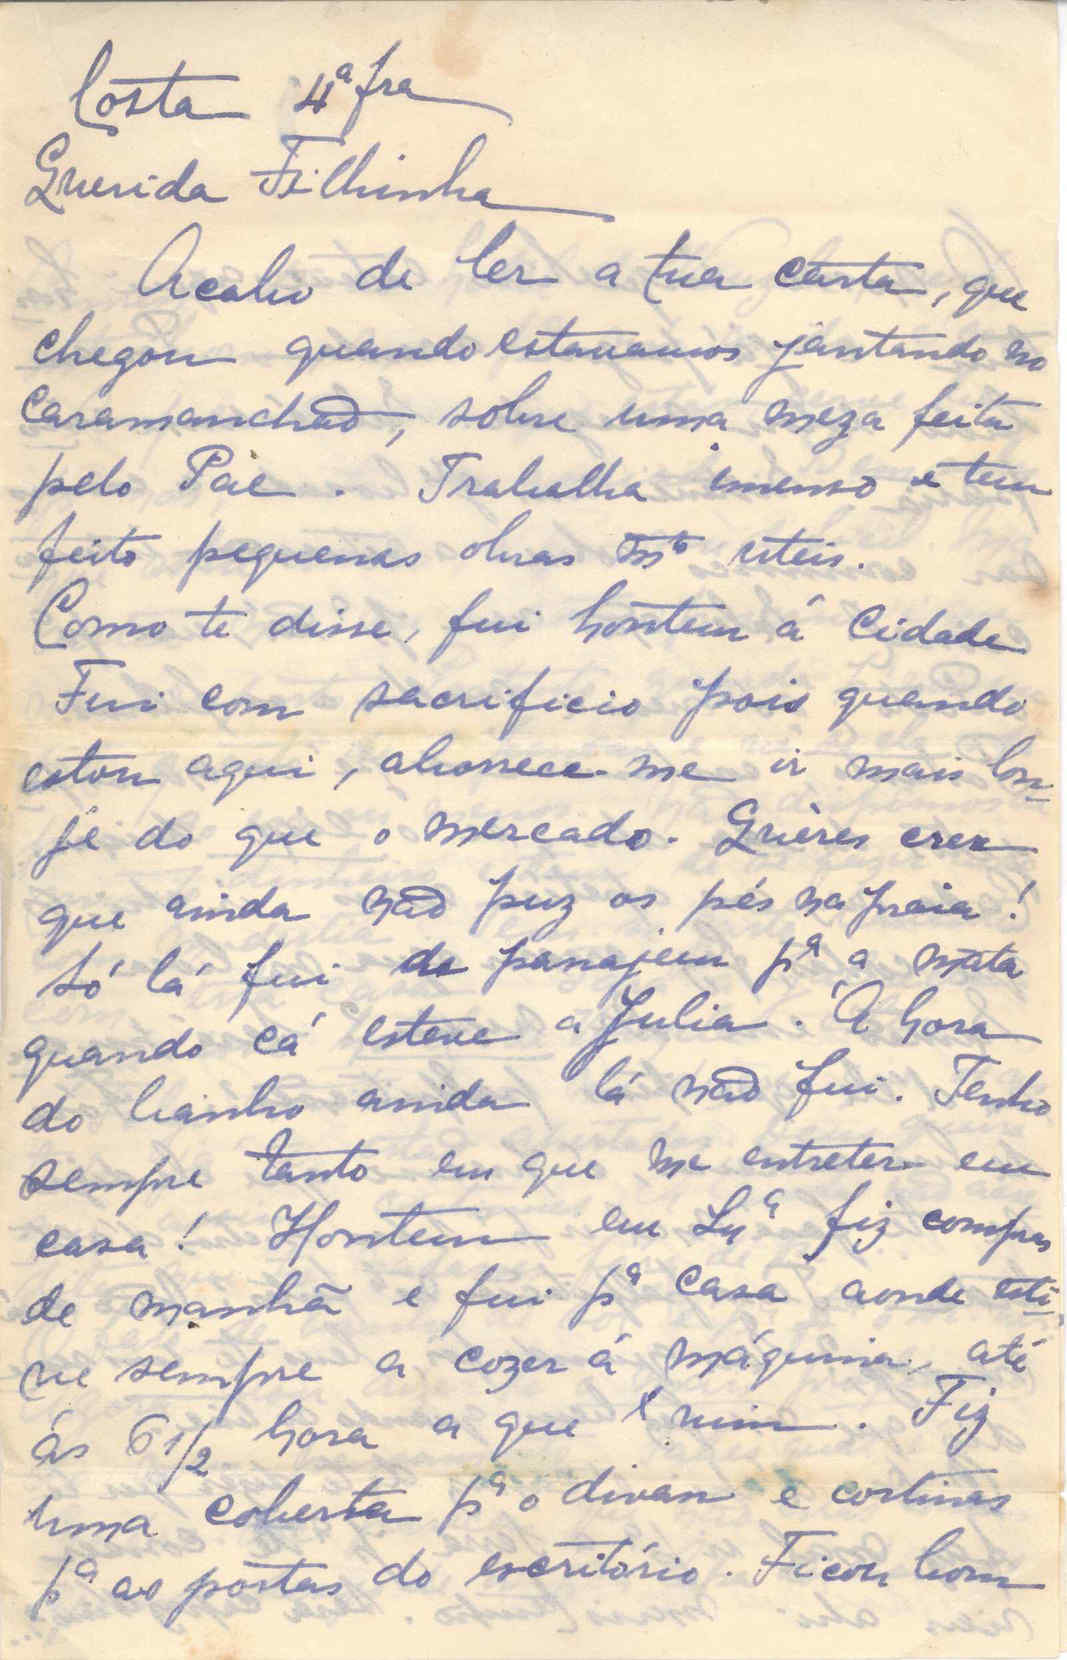 Costa 4ª fra
Querida Filhinha
Acabo de ler a tua carta, que
chegou quando estavamos jantando no
caramanchão, sobre uma meza feita
pelo Pae. Trabalha imenso e tem
feito pequenas obras mto uteis.
Como te disse, fui hontem á Cidade
Fui com sacrificio pois quando
estou aqui, aborrece-me ir mais lon-
je do que o mercado. Quéres crer
que ainda não puz os pés na praia!
Só lá fui de passajem pª a mata
quando cá esteve a Julia. Á hora
do banho ainda lá não fui. Tenho
sempre tanto em que me entreter em
casa! Hontem em Lxª fiz compras
de manhã e fui pª casa aonde esti-
ve sempre a cozer á máquina, até
ás 6 1/2 hora a que vim. Fiz
uma coberta pª o divan e cortinas
pª as portas do escritório. Ficou bom